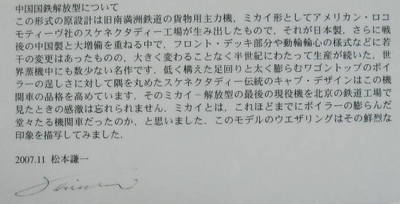 中国国鉄解放型について
この形式の原設計は旧南満洲鉄道の貨物用主力機、ミカイ形としてアメリカン・ロコ
モティーヴ社のスケネクタディー工場が生み出したもので、それが日本製、さらに戦
後の中国製と大増備を重ねる中で、フロント・デッキ部分や動輪輪心の様式などに若
干の変更はあったものの、大きく変わることなく半世紀にわたって生産が続いた、世
界蒸機中にも数少ない名作です。低く構えた足回りと太く膨らむワゴントップのボイ
ラーの逞しさに対して隅を丸めたスケネクタディー伝統のキャブ・デザインはこの機
関車の品格を高めています。そのミカイ-解放型の最後の現役機を北京の鉄道工場で
見たときの感激は忘れられません。ミカイとは、これほどまでにボイラーの膨らんだ
堂々たる機関車だったのか、と思いました。このモデルのウエザリングはその鮮烈な
印象を描写してみました。
2007.11 松本謙一